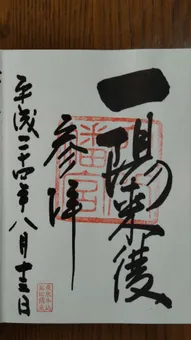 一陽来復
参拝
平成二十四年八月十三日